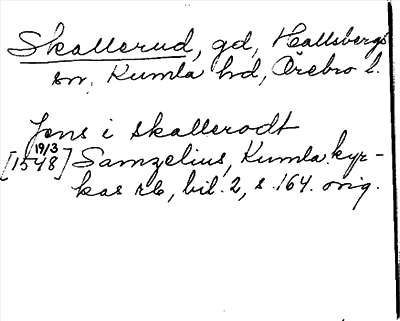 Skallerud, gd, Hallsbergs
sn, Kumla hd, Örebro l.
Jens i skallerodt
19/3
[1548] Samzelius, Kumla kyr-
kas rb, bil. 2, s. 164. orig.